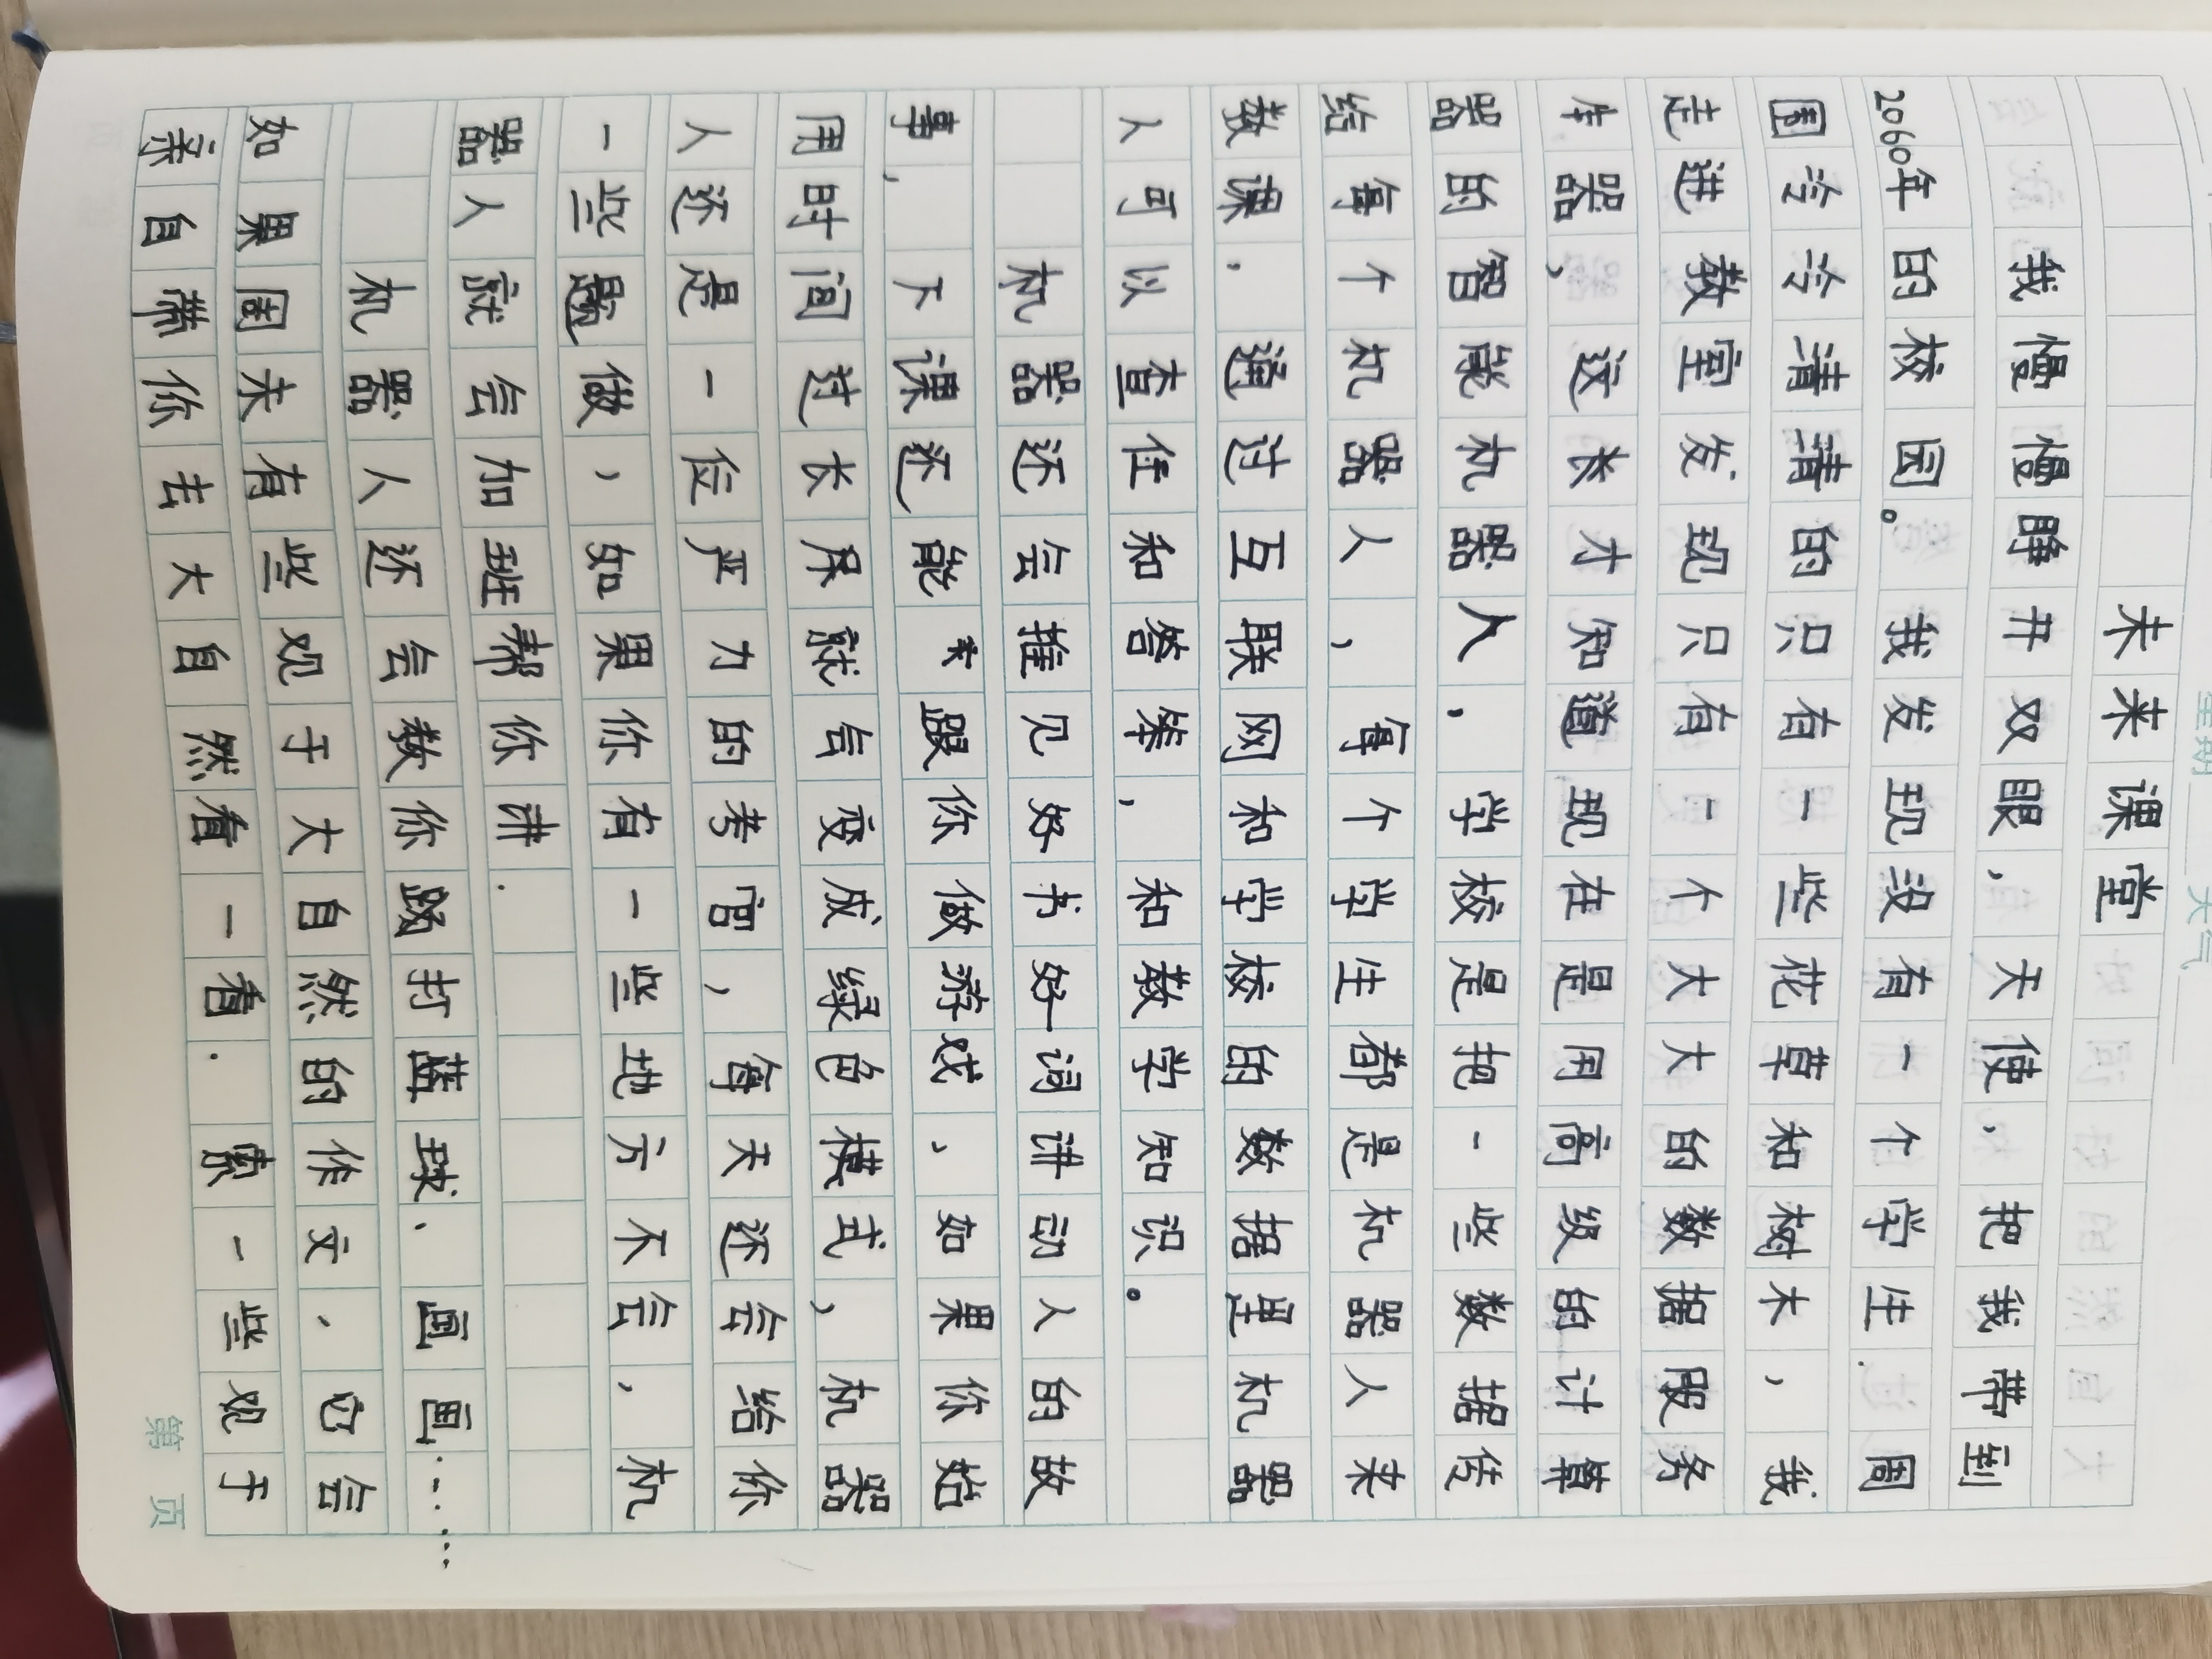 星期 天气
未来课堂
我慢慢睁开双眼，天使，把我带到
2060年的校园。我发现没有一个学生.周
围冷冷清清的只有一些花草和树木，我
走进教室发现只有一个大大的数据服务
库器，这张才知道现在是用高级的计算
器的智能机器人，学校是把一些数据传
给每个机器人，每个学生都是机器人来
教课，通过互联网和学校的数据里机器
人可以查住和答等，和教学知识。
机器还会推见好书好词讲动人的故
事，下课还能跟你做游戏，如果你始
用时间过长屏就会变成绿色模式，机器
人还是一位严力的考官，每天还会给你
一些题做，如果你有一些地方不会，机
器人就会加班帮你讲.
机器人还会教你踢打蓝球、画画……
如果周末有些观于大自然的作文，它会
亲自带你去大自然看一看.索一些观于
第 页